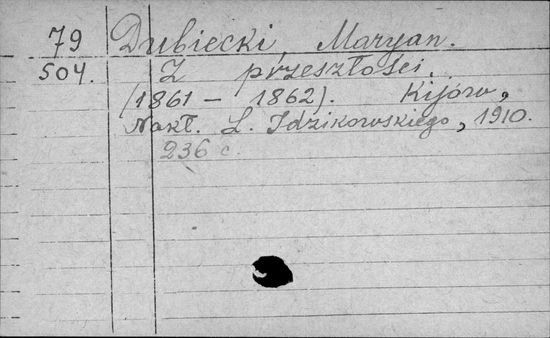 79 Dubiecki, Maryan.
504. Z przeszłości.
(1861 — 1862). Kijów,
Nakł. L. Idzikowskiego, 1910.
236 c.